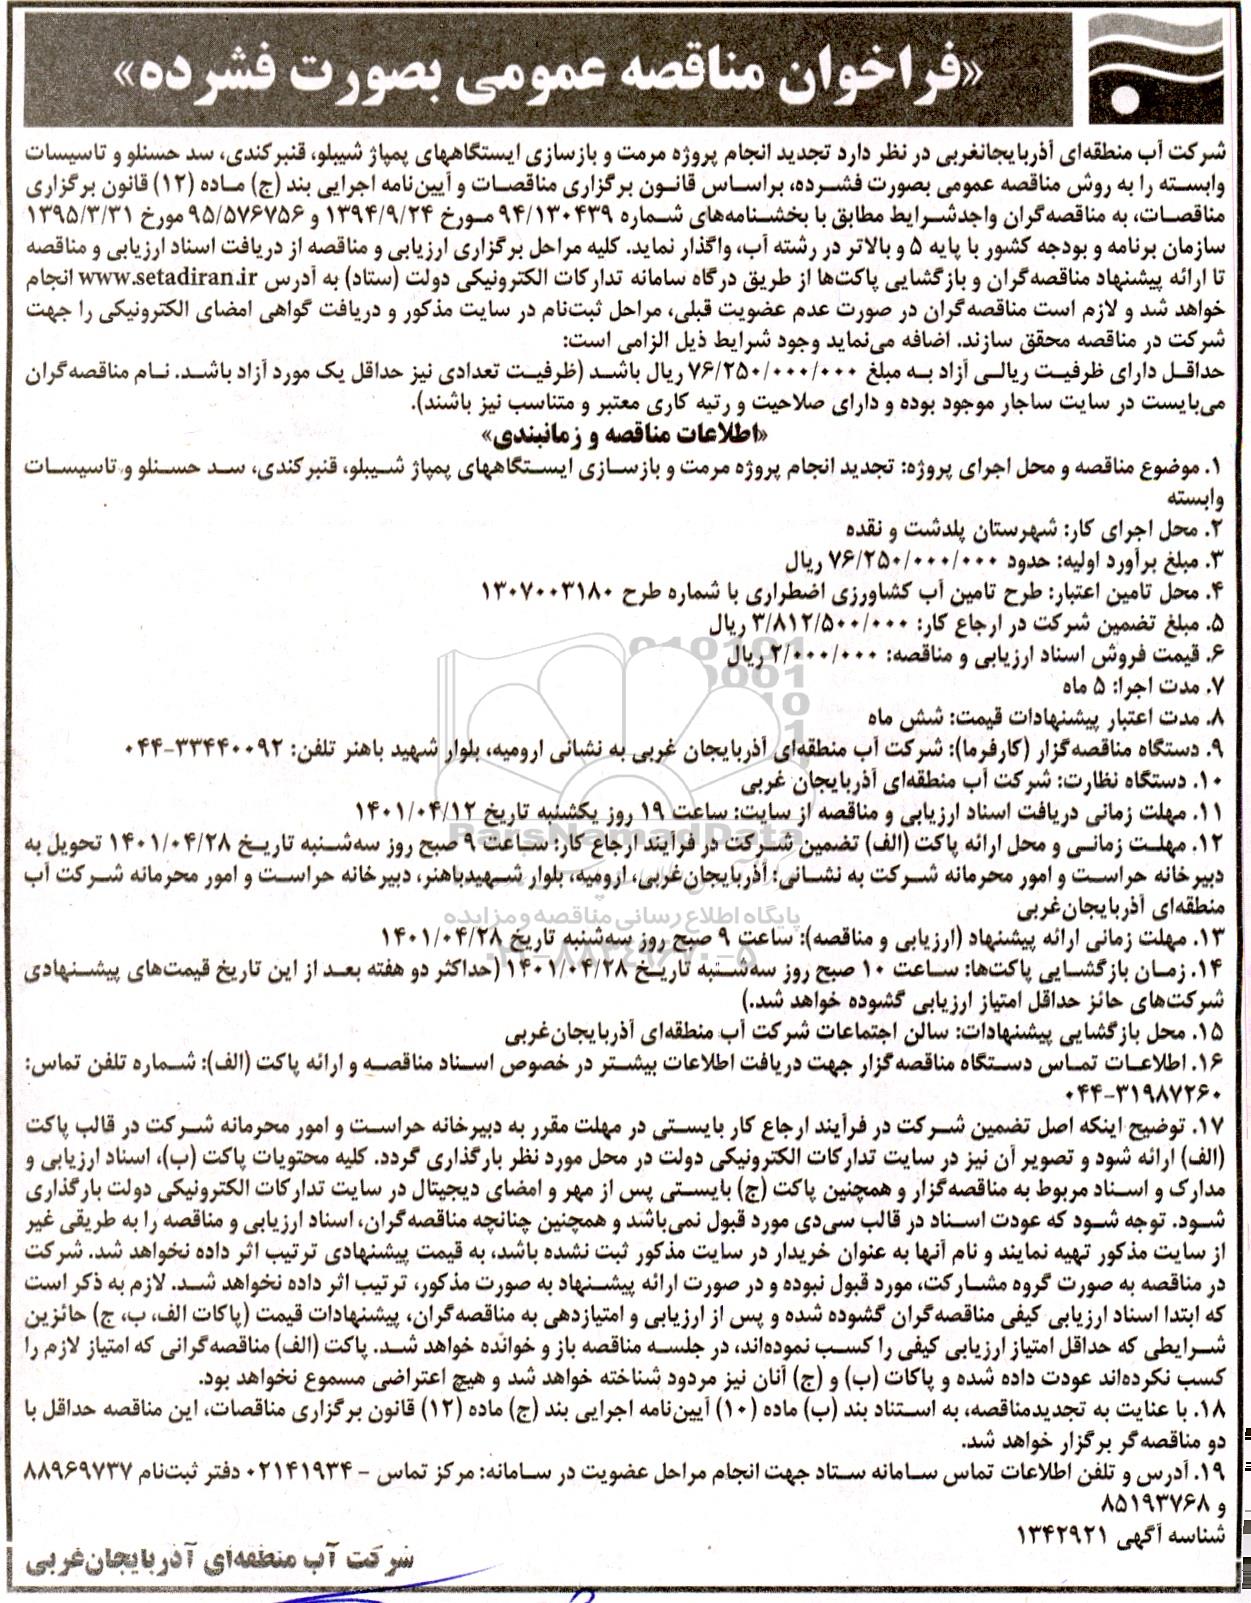 «فراخوان مناقصه عمومی بصورت فشرده»
شرکت آب منطقه‌ای آذربایجانغربی در نظر دارد تجدید انجام پروژه مرمت و بازسازی ایستگاههای پمپاژ شیبلو، قنبرکندی، سد حسنلو و تاسیسات
وابسته را به روش مناقصه عمومی بصورت فشرده، براساس قانون برگزاری مناقصات و آیین‌نامه اجرایی بند (ج) ماده (۱۲) قانون برگزاری
مناقصات، به مناقصه‌گران واجدشرایط مطابق با بخشنامه‌های شماره ۹۴/۱۳۰۴۳۹ مورخ ۱۳۹۴/۹/۲۴ و ۹۵/۵۷۶۷۵۶ مورخ ۱۳۹۵/۳/۳۱
سازمان برنامه و بودجه کشور با پایه ۵ و بالاتر در رشته آب، واگذار نماید. کلیه مراحل برگزاری ارزیابی و مناقصه از دریافت اسناد ارزیابی و مناقصه
تا ارائه پیشنهاد مناقصه‌گران و بازگشایی پاکت‌ها از طریق درگاه سامانه تدارکات الکترونیکی دولت (ستاد) به آدرس www.setadiran.ir انجام
خواهد شد و لازم است مناقصه‌گران در صورت عدم عضویت قبلی، مراحل ثبت‌نام در سایت مذکور و دریافت گواهی امضای الکترونیکی را جهت
شرکت در مناقصه محقق سازند. اضافه می‌نماید وجود شرایط ذیل الزامی است:
حداقل دارای ظرفیت ریالی آزاد به مبلغ ۷۶/۲۵۰/۰۰۰/۰۰۰ ریال باشد (ظرفیت تعدادی نیز حداقل یک مورد آزاد باشد. نام مناقصه‌گران
می‌بایست در سایت ساجار موجود بوده و دارای صلاحیت و رتبه کاری معتبر و متناسب نیز باشند).
«اطلاعات مناقصه و زمانبندی»
۱. موضوع مناقصه و محل اجرای پروژه: تجدید انجام پروژه مرمت و بازسازی ایستگاههای پمپاژ شیبلو، قنبرکندی، سد حسنلو و تاسیسات
وابسته
۲. محل اجرای کار: شهرستان پلدشت و نقده
۳. مبلغ برآورد اولیه: حدود ۷۶/۲۵۰/۰۰۰/۰۰۰ ریال
۴. محل تامین اعتبار: طرح تامین آب کشاورزی اضطراری با شماره طرح ۱۳۰۷۰۰۳۱۸۰
۵. مبلغ تضمین شرکت در ارجاع کار: ۳/۸۱۲/۵۰۰/۰۰۰ ریال
۶. قیمت فروش اسناد ارزیابی و مناقصه: ۲/۰۰۰/۰۰۰ ریال
۷. مدت اجرا: ۵ ماه
۸. مدت اعتبار پیشنهادات قیمت: شش ماه
۹. دستگاه مناقصه‌گزار (کارفرما): شرکت آب منطقه‌ای آذربایجان غربی به نشانی ارومیه، بلوار شهید باهنر تلفن: ۳۳۴۴۰۰۹۲-۰۴۴
۱۰. دستگاه نظارت: شرکت آب منطقه‌ای آذربایجان غربی
۱۱. مهلت زمانی دریافت اسناد ارزیابی و مناقصه از سایت: ساعت ۱۹ روز یکشنبه تاریخ ۱۴۰۱/۰۴/۱۲
ParsNamadData
۱۲. مهلت زمانی و محل ارائه پاکت (الف) تضمین شرکت در فرآیند ارجاع کار: ساعت ۹ صبح روز سه‌شنبه تاریخ ۱۴۰۱/۰۴/۲۸ تحویل به
دبیرخانه حراست و امور محرمانه شرکت به نشانی: آذربایجان‌غربی، ارومیه، بلوار شهیدباهنر، دبیرخانه حراست و امور محرمانه شرکت آب
منطقه‌ای آذربایجان‌غربی
پایگاه اطلاع رسانی مناقصه و مزایده
۱۳. مهلت زمانی ارائه پیشنهاد (ارزیابی و مناقصه): ساعت ۹ صبح روز سه‌شنبه تاریخ ۱۴۰۱/۰۴/۲۸
۰۲۱-۸۸۳۴۹۶۷۰-۵
۱۴. زمان بازگشایی پاکت‌ها: ساعت ۱۰ صبح روز سه‌شنبه تاریخ ۱۴۰۱/۰۴/۲۸ (حداکثر دو هفته بعد از این تاریخ قیمت‌های پیشنهادی
شرکت‌های حائز حداقل امتیاز ارزیابی گشوده خواهد شد.)
۱۵. محل بازگشایی پیشنهادات: سالن اجتماعات شرکت آب منطقه‌ای آذربایجان‌غربی
۱۶. اطلاعات تماس دستگاه مناقصه‌گزار جهت دریافت اطلاعات بیشتر در خصوص اسناد مناقصه و ارائه پاکت (الف): شماره تلفن تماس:
۳۱۹۸۷۲۶۰-۰۴۴
۱۷. توضیح اینکه اصل تضمین شرکت در فرآیند ارجاع کار بایستی در مهلت مقرر به دبیرخانه حراست و امور محرمانه شرکت در قالب پاکت
(الف) ارائه شود و تصویر آن نیز در سایت تدارکات الکترونیکی دولت در محل مورد نظر بارگذاری گردد. کلیه محتویات پاکت (ب)، اسناد ارزیابی و
مدارک و اسناد مربوط به مناقصه‌گزار و همچنین پاکت (ج) بایستی پس از مهر و امضای دیجیتال در سایت تدارکات الکترونیکی دولت بارگذاری
شود. توجه شود که عودت اسناد در قالب سی‌دی مورد قبول نمی‌باشد و همچنین چنانچه مناقصه‌گران، اسناد ارزیابی و مناقصه را به طریقی غیر
از سایت مذکور تهیه نمایند و نام آنها به عنوان خریدار در سایت مذکور ثبت نشده باشد، به قیمت پیشنهادی ترتیب اثر داده نخواهد شد. شرکت
در مناقصه به صورت گروه مشارکت، مورد قبول نبوده و در صورت ارائه پیشنهاد به صورت مذکور، ترتیب اثر داده نخواهد شد. لازم به ذکر است
که ابتدا اسناد ارزیابی کیفی مناقصه‌گران گشوده شده و پس از ارزیابی و امتیازدهی به مناقصه‌گران، پیشنهادات قیمت (پاکات الف، ب، ج) حائزین
شرایطی که حداقل امتیاز ارزیابی کیفی را کسب نموده‌اند، در جلسه مناقصه باز و خوانده خواهد شد. پاکت (الف) مناقصه‌گرانی که امتیاز لازم را
کسب نکرده‌اند عودت داده شده و پاکات (ب) و (ج) آنان نیز مردود شناخته خواهد شد و هیچ اعتراضی مسموع نخواهد بود.
۱۸. با عنایت به تجدیدمناقصه، به استناد بند (ب) ماده (۱۰) آیین‌نامه اجرایی بند (ج) ماده (۱۲) قانون برگزاری مناقصات، این مناقصه حداقل با
دو مناقصه‌گر برگزار خواهد شد.
۱۹. آدرس و تلفن اطلاعات تماس سامانه ستاد جهت انجام مراحل عضویت در سامانه: مرکز تماس - ۰۲۱۴۱۹۳۴ دفتر ثبت‌نام ۸۸۹۶۹۷۳۷
و ۸۵۱۹۳۷۶۸
شناسه آگهی ۱۳۴۲۹۲۱
شرکت آب منطقه‌ای آذربایجان‌غربی